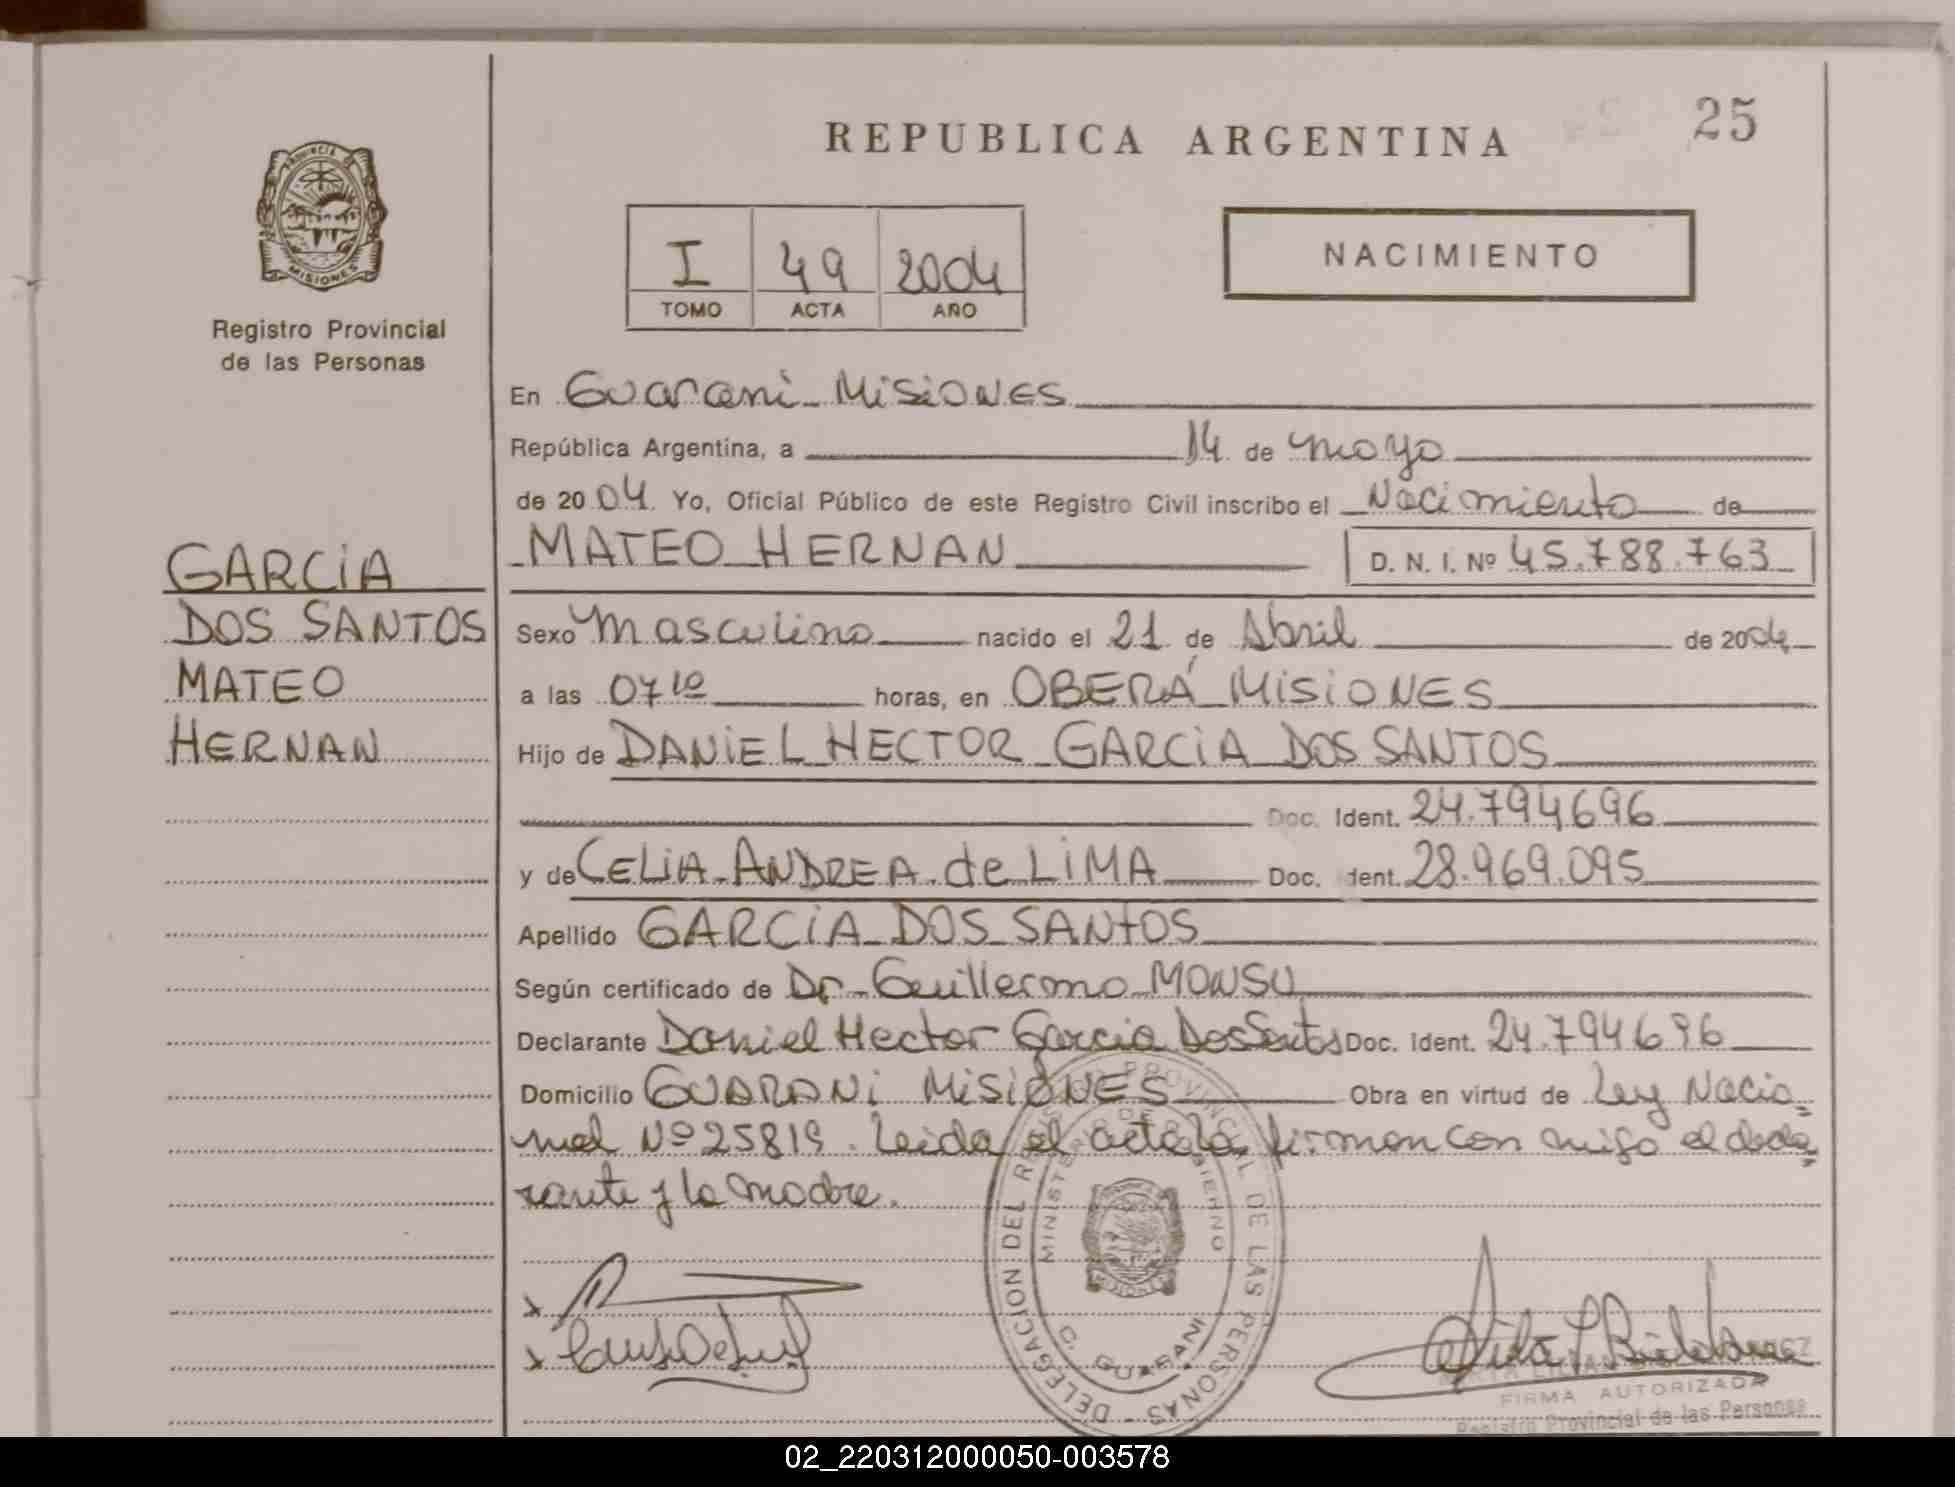 25
REPUBLICA ARGENTINA
PROVINCIA
MISIONES
Registro Provincial
de las Personas
I 49 2004
TOMO ACTA AÑO
NACIMIENTO
GARCIA
DOS SANTOS
MATEO
HERNAN
En Guarani - MISIONES
República Argentina, a 14 de mayo
de 2004. Yo, Oficial Público de este Registro Civil inscribo el Nacimiento de
MATEO HERNAN D. N. I. Nº 45.788.763
Sexo Masculino nacido el 21 de Abril de 2004
a las 07 10 horas, en OBERÁ MISIONES
Hijo de DANIEL HECTOR GARCIA DOS SANTOS
Doc. Ident. 24.794696
y de CELIA ANDREA de LIMA Doc. Ident. 28.969.095
Apellido GARCIA DOS SANTOS
Según certificado de Dr. Guillermo MONSU
Declarante Daniel Hector Garcia Dos Santos Doc. Ident. 24.794696
Domicilio GUARANI MISIONES Obra en virtud de Ley Nacio=
nal Nº 25819. Leida el acta la firman con migo el decla=
rante y la madre.
DELEGACION DEL REGISTRO PROVINCIAL DE LAS PERSONAS
MINISTERIO DE GOBIERNO
C. GUARANI
MISIONES
FIRMA AUTORIZADA
Registro Provincial de las Personas
02_220312000050-003578